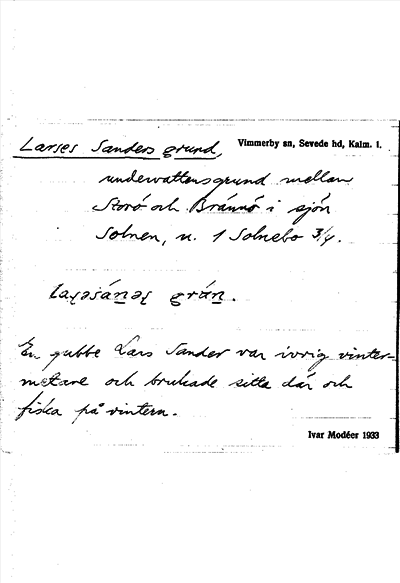 Larses Sanders grund, Vimmerby sn, Sevede hd, Kalm. l.
undervattensgrund mellan
Storö och Brännö i sjön
Solnen, n. 1 Solnebo 3/4.
En gubbe Lars Sander var ivrig vinter-
metare och brukade sitta där och
fiska på vintern.
Ivar Modéer 1933